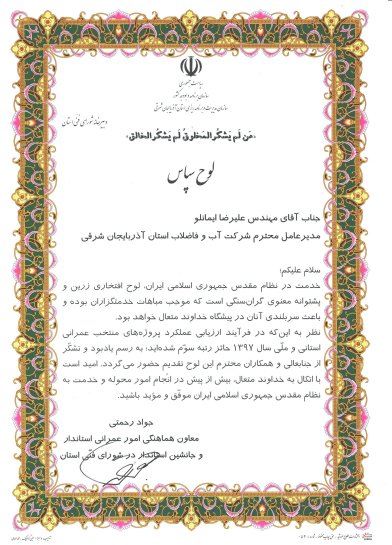 ریاست جمهوری
سازمان برنامه و بودجه کشور
سازمان مدیریت و برنامه ریزی استان آذربایجان شرقی
دبیرخانه شورای فنی استان
«مَن لَم یَشکُر المَخلوقَ لَم یَشکُر الخالِق»
لوح سپاس
جناب آقای مهندس علیرضا ایمانلو
مدیرعامل محترم شرکت آب و فاضلاب استان آذربایجان شرقی
سلام علیکم؛
خدمت در نظام مقدس جمهوری اسلامی ایران، لوح افتخاری زرین و
پشتوانه معنوی گران‌سنگی است که موجب مباهات خدمتگزاران بوده و
باعث سربلندی آنان در پیشگاه خداوند متعال خواهد بود.
نظر به این‌که در فرآیند ارزیابی عملکرد پروژه‌های منتخب عمرانی
استانی و ملّی سال ۱۳۹۷ حائز رتبه سوّم شده‌اید؛ به رسم یادبود و تشکّر
از جنابعالی و همکاران محترم این لوح تقدیم حضور می‌گردد. امید است
با اتکال به خداوند متعال، بیش از پیش در انجام امور محوله و خدمت به
نظام مقدس جمهوری اسلامی ایران موفّق و مؤید باشید.
جواد رحمتی
معاون هماهنگی امور عمرانی استاندار
و جانشین استاندار در شورای فنّی استان